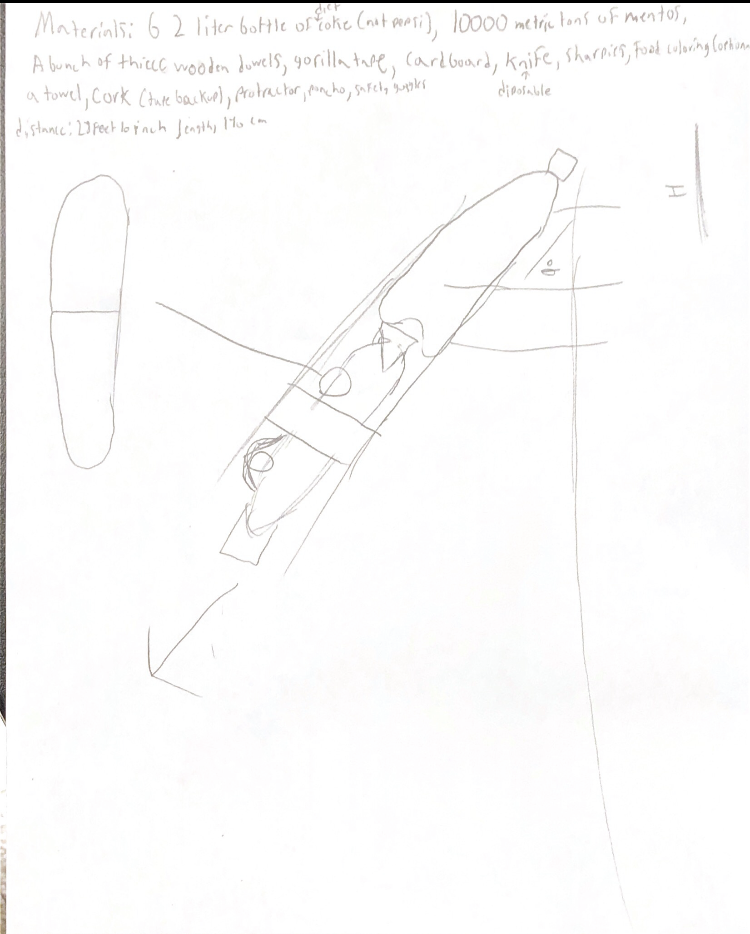 diet
Materials: 6 2 liter bottle of coke (not pepsi), 10000 metric tons of mentos,
A bunch of thicc wooden dowels, gorilla tape, cardboard, knife, sharpies, Food coloring
a towel, Cork (tape backup), Protractor, poncho, safety goggles
disposable
distance: feet 10 inch length, cm